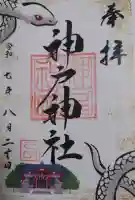 奉拝
神戸神社
令和七年八月二十日